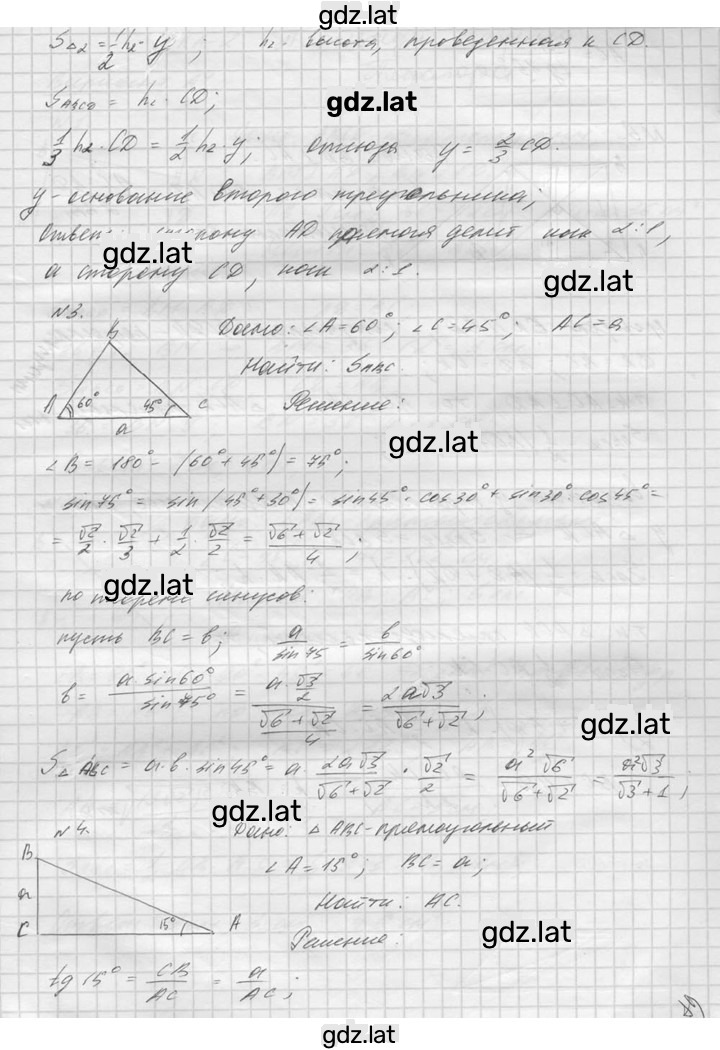 gdz.lat
S△2 = 1/2 h2 · y ; h2 - высота, проведенная к CD.
gdz.lat
SABCD = h2 · CD;
1/3 h2 · CD = 1/2 h2 · y; отсюда y = 2/3 CD.
y - основание второго треугольника;
Ответ: сторону AD прямая делит как 2:1,
gdz.lat
а сторону CD, как 2:1.
gdz.lat
N3.
Дано: ∠A = 60°; ∠C = 45°; AC = a
Найти: SABC.
Решение:
B
A 60° 45° C
a
gdz.lat
∠B = 180° - (60° + 45°) = 75°;
sin 75° = sin (45° + 30°) = sin 45° · cos 30° + sin 30° · cos 45° =
= √2/2 · √2/3 + 1/2 · √2/2 = (√6 + √2)/4 ;
gdz.lat
по теореме синусов:
пусть BC = b; a/sin 75 = b/sin 60°
b = a · sin 60°/sin 75° = (a · √3/2)/((√6 + √2)/4) = 2a√3/(√6 + √2) ;
gdz.lat
S△ABC = a · b · sin 45° = a · 2a√3/(√6 + √2) · √2/2 = a²√6/(√6 + √2) = a²√3/(√3 + 1) ;
gdz.lat
N4.
Дано: △ ABC - прямоугольный
∠A = 15°; BC = a;
Найти: AC.
B
a
C 15° A
gdz.lat
Решение:
tg 15° = CB/AC = a/AC ;
gdz.lat